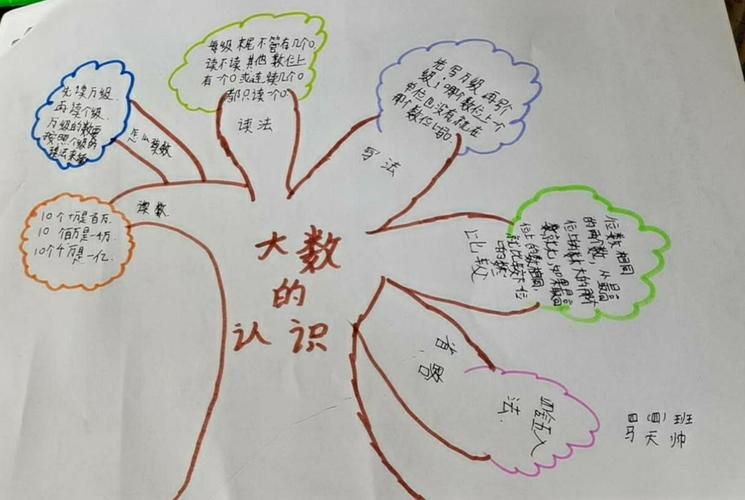 大数
的
认识
10个十万是百万
10个百万是一千万
10个千万是一亿
读数
先读万级
再读个级
万级的数要
按照个级的
读法来读
怎么读数
每级末尾不管有几个0
读不读其他数位上
有一个0或连续几个0
都只读一个0
读法
先写万级再写个
级,哪个数位上一个
单位也没有就在
那个数位上写0
写法
位数相同
的两个数,从最高
位上的数大的那个
数就大,如果最高
位上的数相同
就比较下一位
的数
比较
省略
四舍五入
法
四(四)班
马天帅